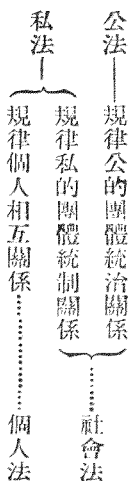 公法——規律公的團體統治關係
私法—規律私的團體統制關係
規律個人相互關係…………個人法
……社會法